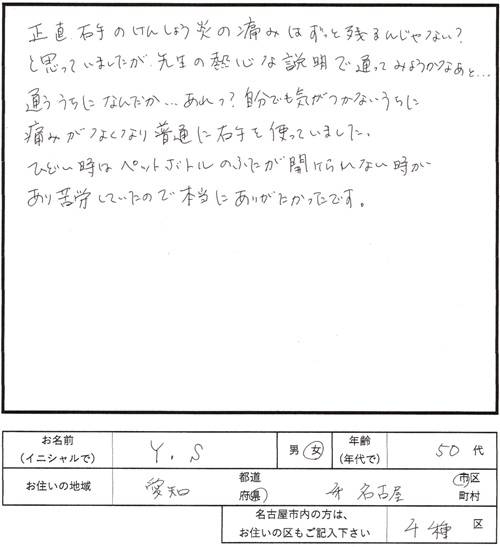 正直 右手のけんしょう炎の痛みはずっと残るんじゃない?
と思っていましたが、先生の熱心な説明で通ってみようかなあと…
通ううちになんだか…あれっ?自分でも気がつかないうちに
痛みがなくなり普通に右手を使っていました。
ひどい時はペットボトルのふたが開けられない時が
あり苦労していたので本当にありがたかったです。
お名前
(イニシャルで)
Y.S
男 女
年齢
(年代で)
50 代
お住いの地域
愛知
都道
府県
名古屋
市区
町村
名古屋市内の方は、
お住いの区もご記入下さい
千種 区